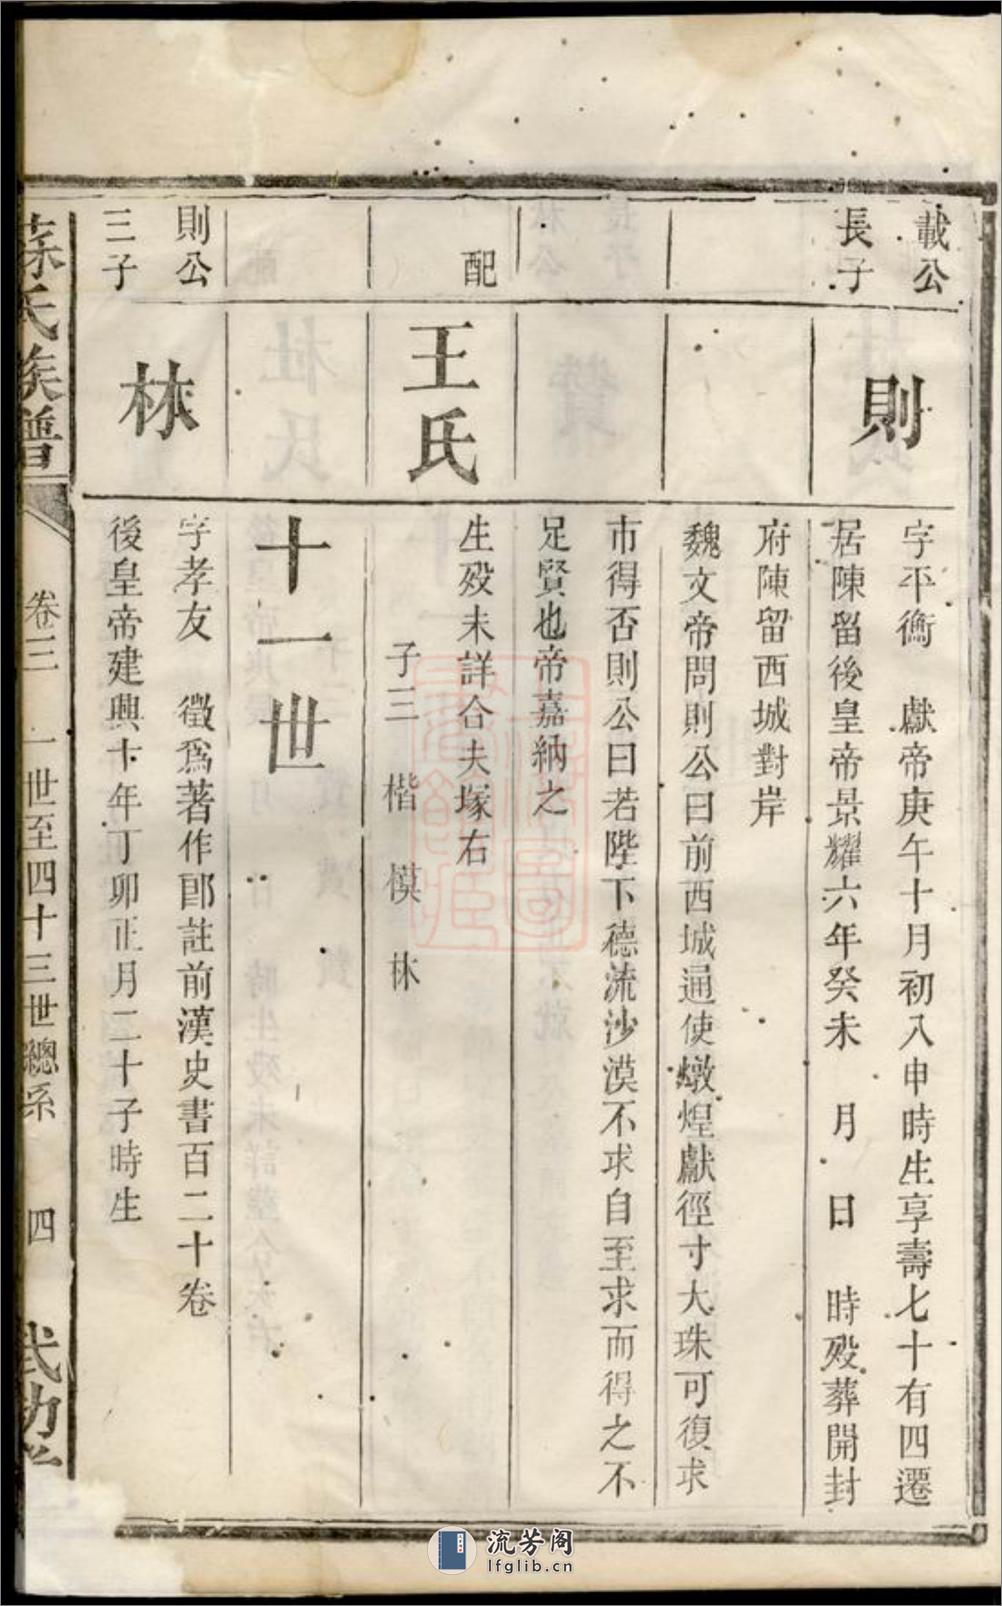 載公
長子
則
字平衡　獻帝庚午十月初入申時生享壽七十有四遷
居陳留後皇帝景耀六年癸未　月　日　時殁葬開封
府陳留西城對岸
魏文帝問則公曰前西城通使燉煌獻徑寸大珠可復求
市得否則公曰若陛下德流沙漠不求自至求而得之不
足賢也帝嘉納之
配
王氏
生殁未詳合夫塚右
子三　楷　模　林
十一世
則公
三子
林
字孝友　徵爲著作郎註前漢史書百二十卷
後皇帝建興十年丁卯正月二十子時生
氏族譜
卷三　一世至四十三世總系　四
武功
流芳阁
lfglib.cn